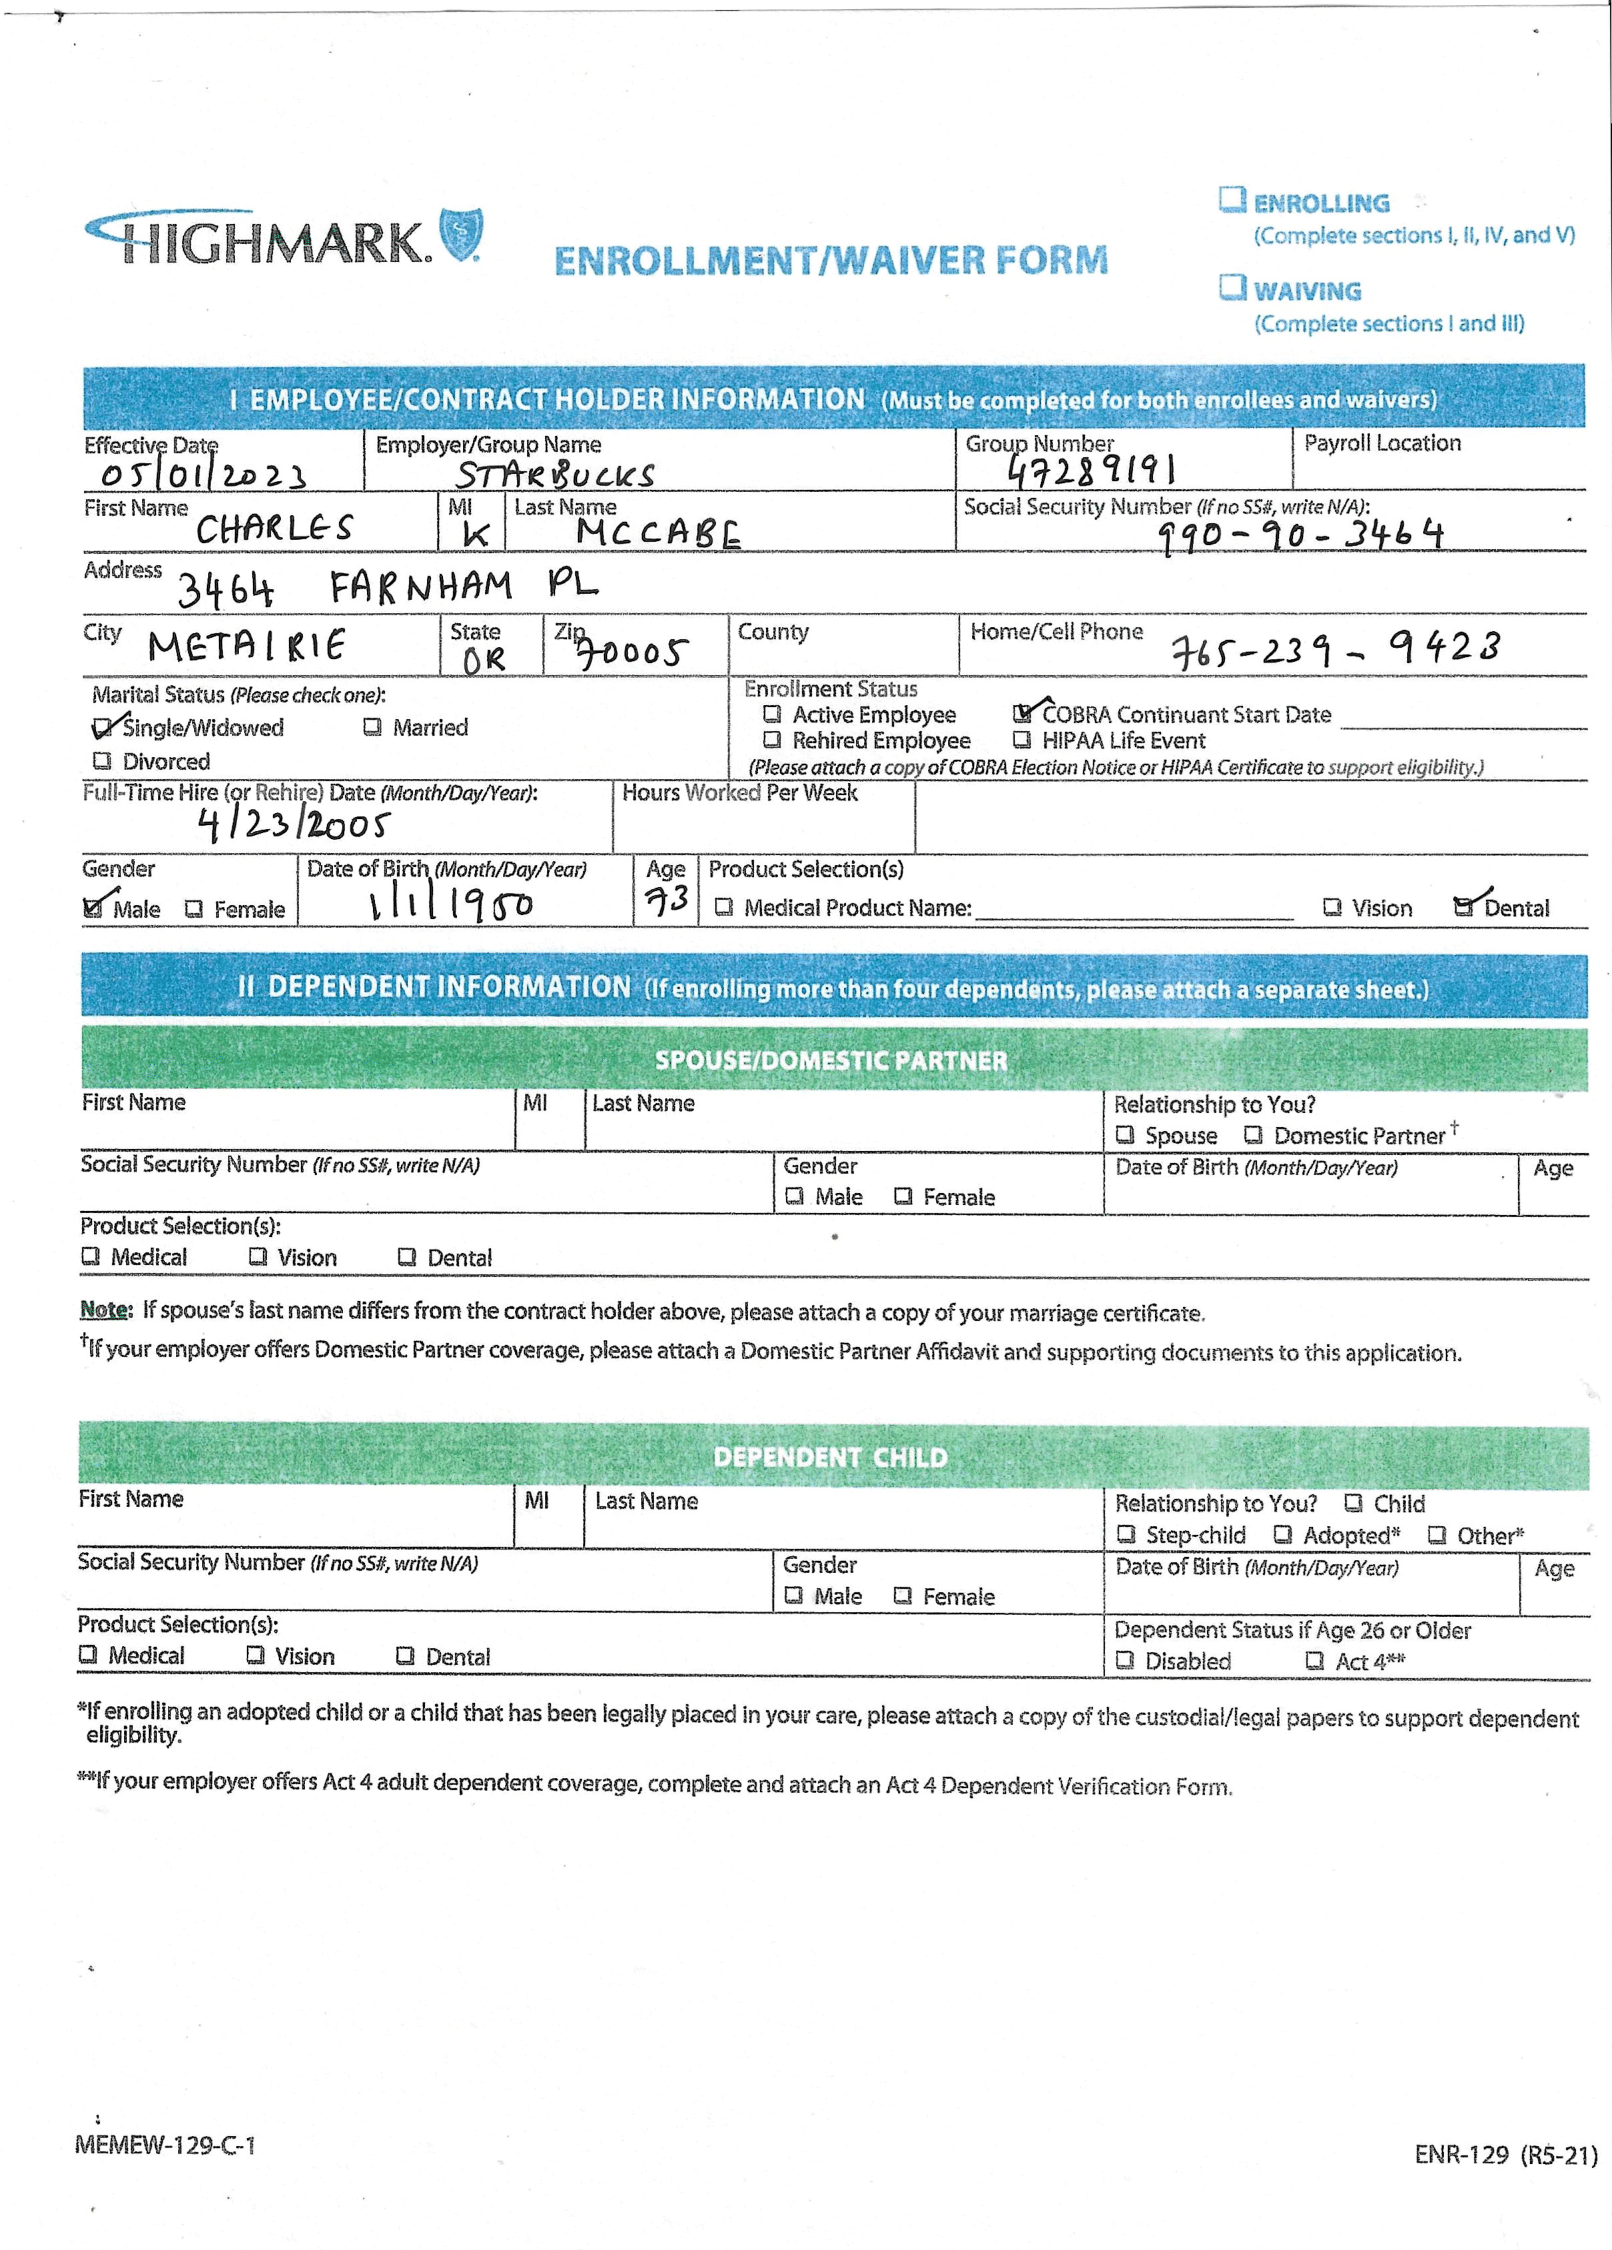 HIGHMARK.
ENROLLMENT/WAIVER FORM
ENROLLING
(Complete sections I, II, IV, and V)
WAIVING
(Complete sections I and III)
I EMPLOYEE/CONTRACT HOLDER INFORMATION (Must be completed for both enrollees and waivers)
Effective Date Employer/Group Name Group Number Payroll Location
05/01/2023 STARBUCKS 47289191
First Name MI Last Name Social Security Number (If no SS#, write N/A):
CHARLES K MCCABE 990-90-3464
Address 3464 FARNHAM PL
City METAIRIE State OR Zip 70005 County Home/Cell Phone 765-239-9423
Marital Status (Please check one): Enrollment Status
Single/Widowed Married Active Employee COBRA Continuant Start Date
Divorced Rehired Employee HIPAA Life Event
(Please attach a copy of COBRA Election Notice or HIPAA Certificate to support eligibility.)
Full-Time Hire (or Rehire) Date (Month/Day/Year): Hours Worked Per Week
4/23/2005
Gender Date of Birth (Month/Day/Year) Age Product Selection(s)
Male Female 1/1/1950 73 Medical Product Name: Vision Dental
II DEPENDENT INFORMATION (If enrolling more than four dependents, please attach a separate sheet.)
SPOUSE/DOMESTIC PARTNER
First Name MI Last Name Relationship to You?
Spouse Domestic Partner†
Social Security Number (If no SS#, write N/A) Gender Date of Birth (Month/Day/Year) Age
Male Female
Product Selection(s):
Medical Vision Dental
Note: If spouse's last name differs from the contract holder above, please attach a copy of your marriage certificate.
†If your employer offers Domestic Partner coverage, please attach a Domestic Partner Affidavit and supporting documents to this application.
DEPENDENT CHILD
First Name MI Last Name Relationship to You? Child
Step-child Adopted* Other*
Social Security Number (If no SS#, write N/A) Gender Date of Birth (Month/Day/Year) Age
Male Female
Product Selection(s): Dependent Status if Age 26 or Older
Medical Vision Dental Disabled Act 4**
*If enrolling an adopted child or a child that has been legally placed in your care, please attach a copy of the custodial/legal papers to support dependent
eligibility.
**If your employer offers Act 4 adult dependent coverage, complete and attach an Act 4 Dependent Verification Form.
MEMEW-129-C-1
ENR-129 (R5-21)